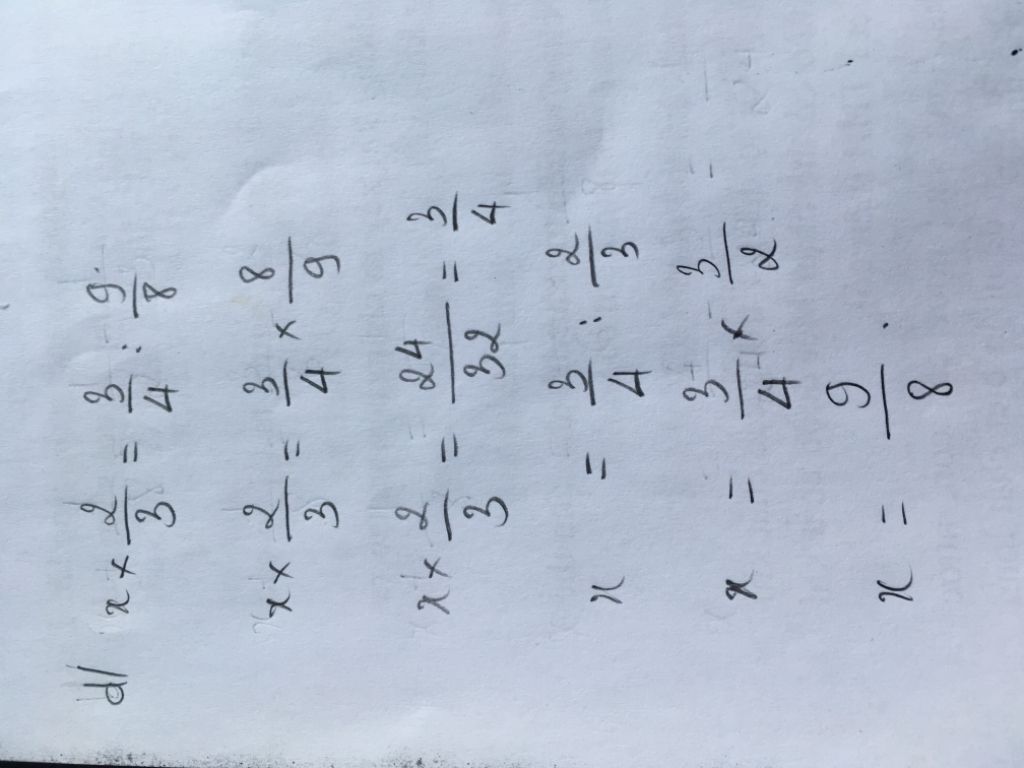 d/ x × 2/3 = 3/4 : 9/8
x × 2/3 = 3/4 × 8/9
x × 2/3 = 24/32 = 3/4
x = 3/4 : 2/3
x = 3/4 × 3/2 =
x = 9/8 .